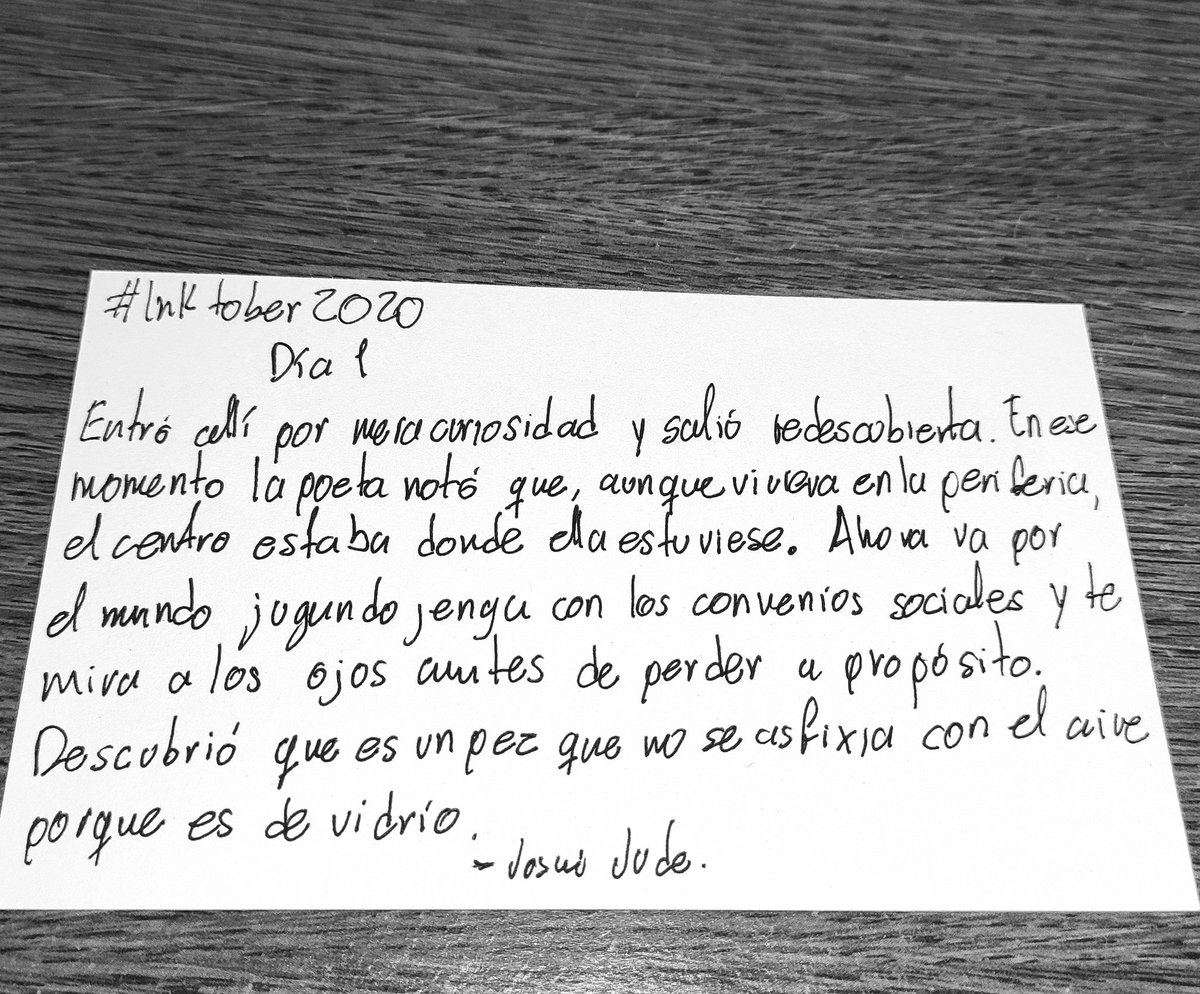 #Inktober2020
Día 1
Entró allí por mera curiosidad y salió redescubierta. En ese
momento la poeta notó que, aunque viviera en la periferia,
el centro estaba donde ella estuviese. Ahora va por
el mundo jugando jenga con los convenios sociales y te
mira a los ojos antes de perder a propósito.
Descubrió que es un pez que no se asfixia con el aire
porque es de vidrio.
- Josué Jude.